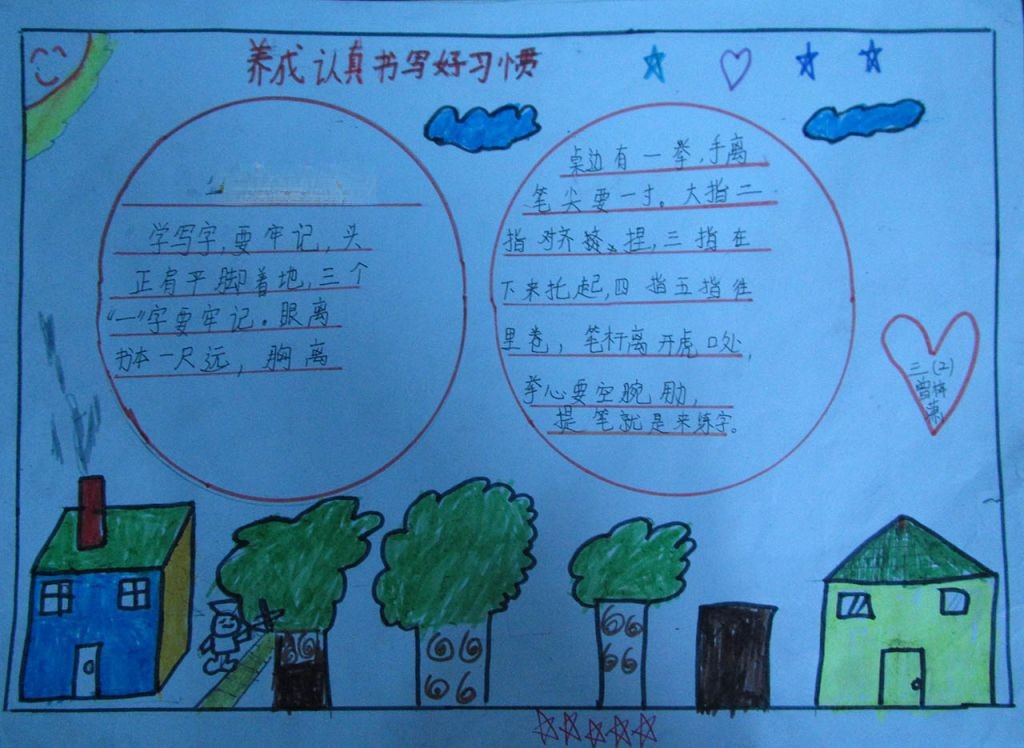 养成认真书写好习惯
学写字,要牢记,头
正肩平脚着地,三个
“一”字要牢记。眼离
书本一尺远,胸离
桌边有一拳,手离
笔尖要一寸。大指二
指对齐捏,三指在
下来托起,四指五指往
里卷,笔杆离开虎口处,
拳心要空腕
提笔就是来练字。
三(2)